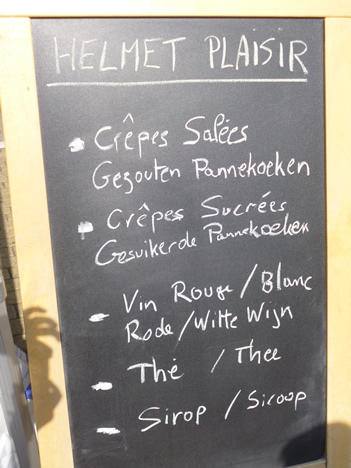 HELMET PLAISIR
Crêpes Salées
Gezouten Pannekoeken
Crêpes Sucrées
Gesuikerde Pannekoeken
Vin Rouge / Blanc
Rode / Witte Wijn
Thé / Thee
Sirop / Siroop